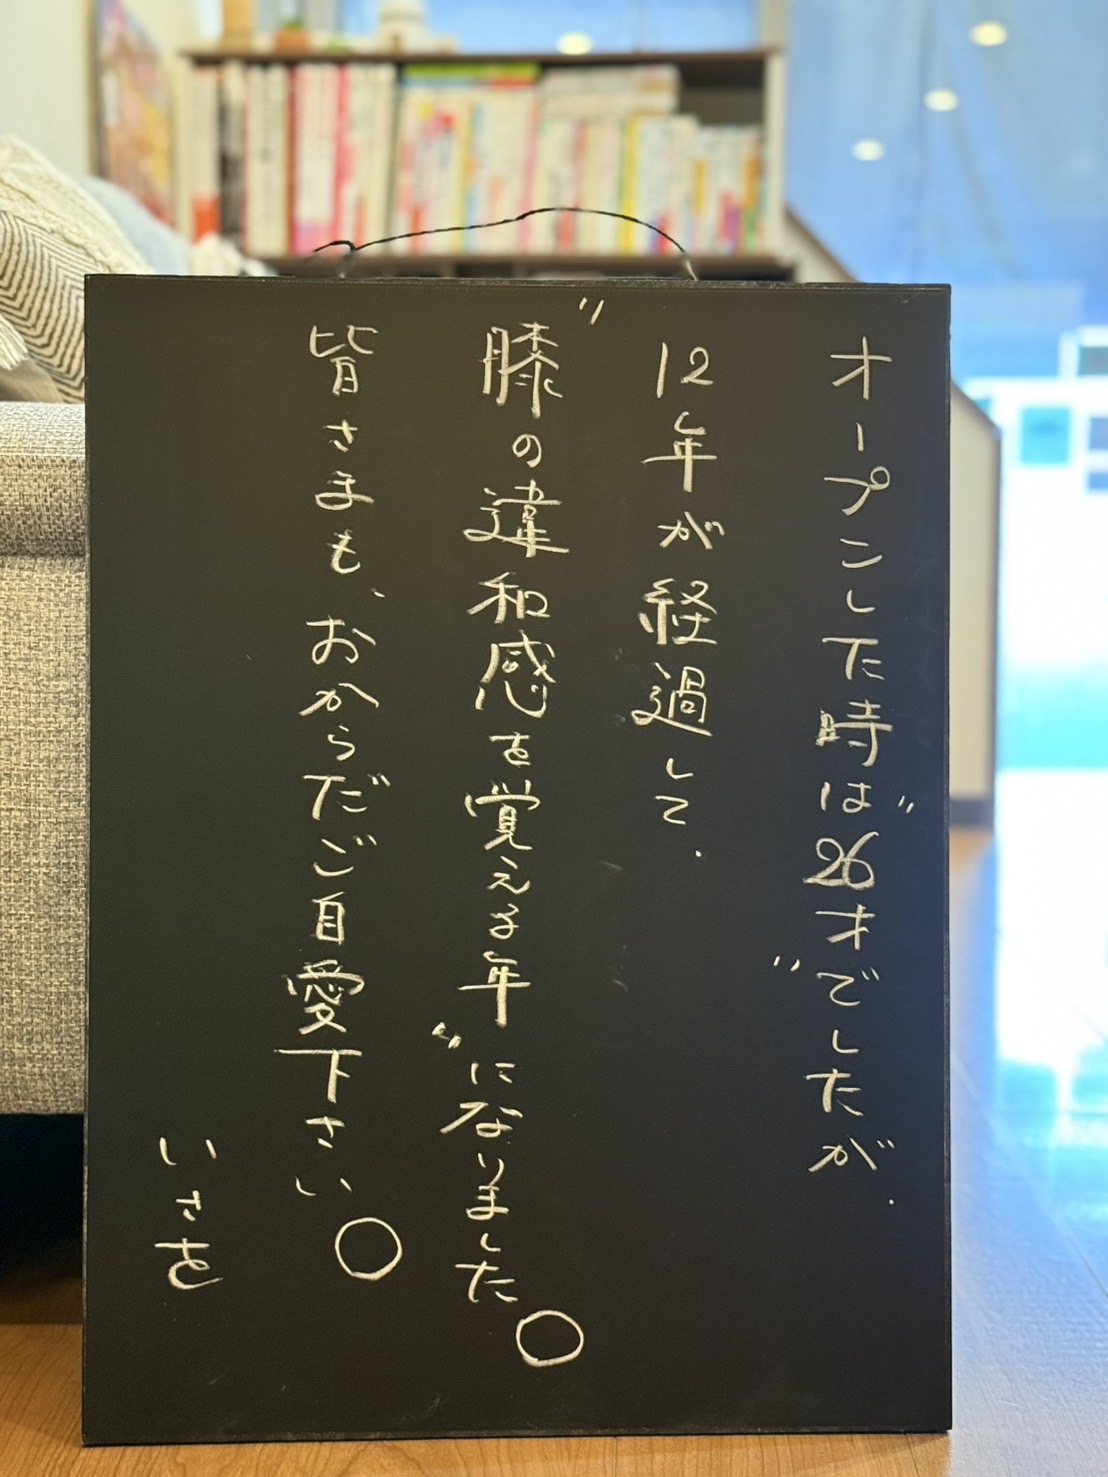 オープンした時は"26才"でしたが、
12年が経過して、
"膝の違和感を覚える年"になりました。
皆さまも、おからだご自愛下さい。
いさを